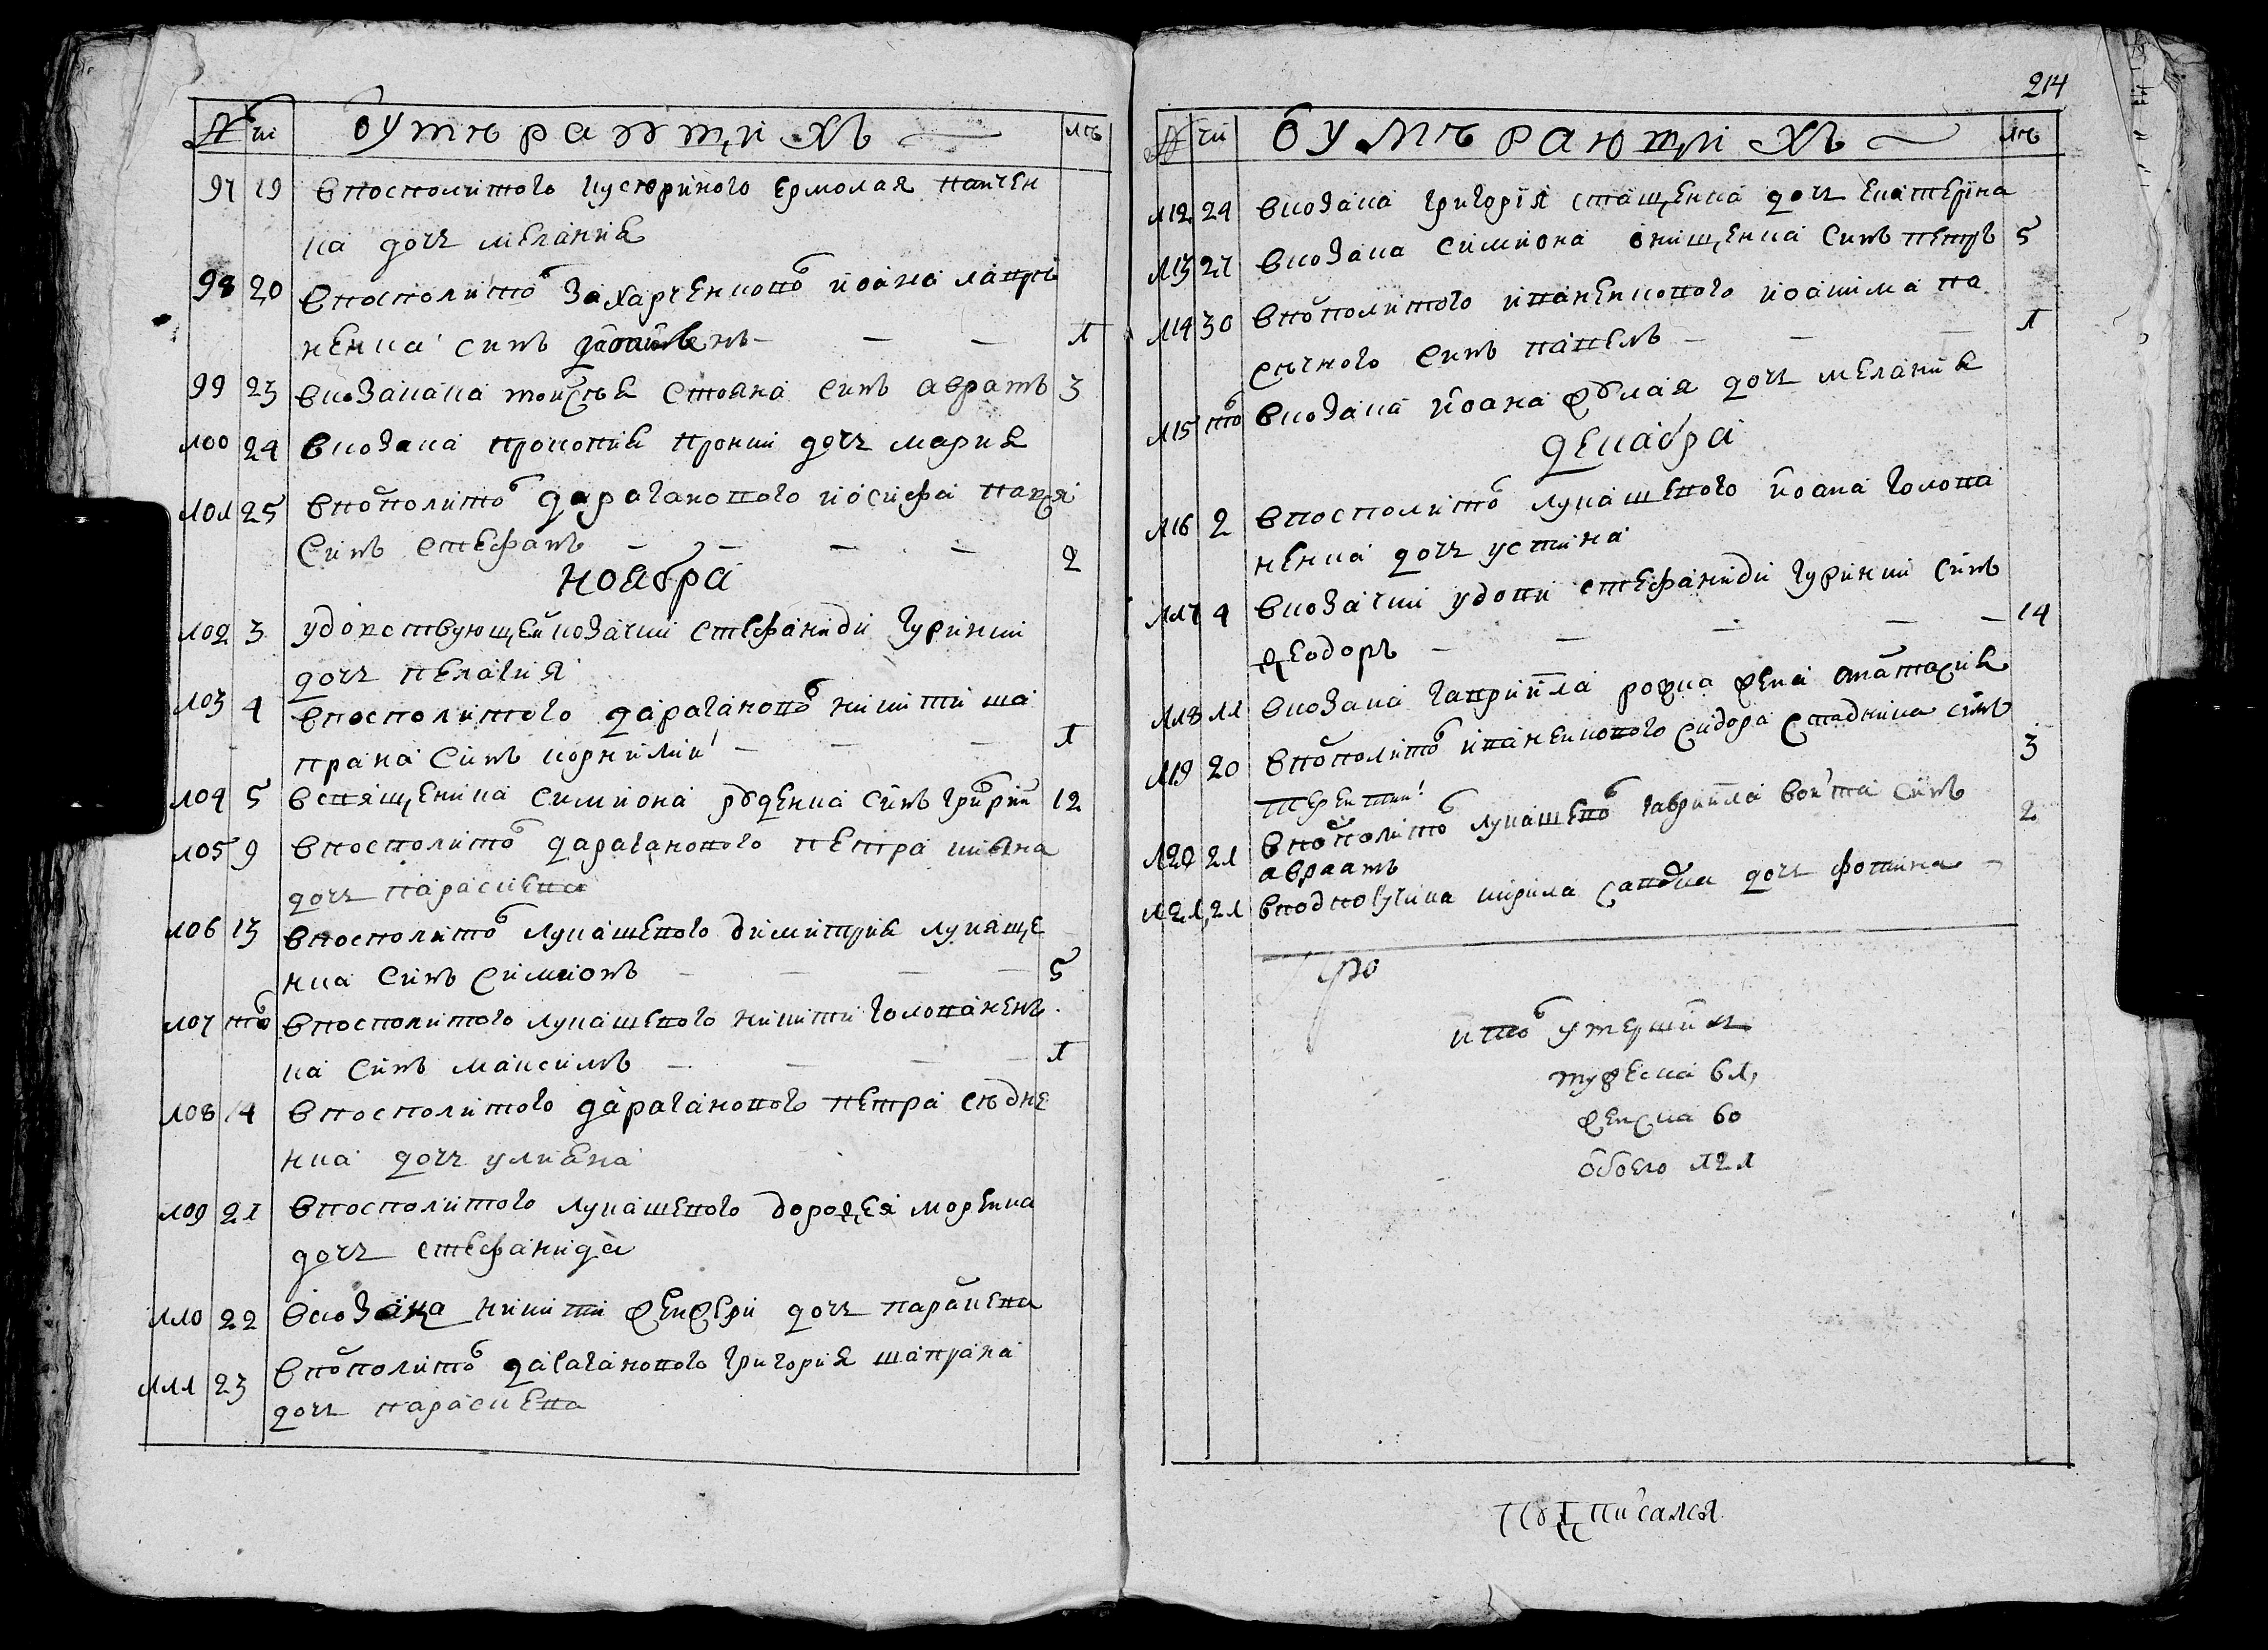 № чи О умѣрающихъ лѣ
97 19 в посполитого кусюриного ермолая панчен
ка дочь мелания
98 20 в посполито захарченково иоана лаврѣ
ненка синъ - - 1
99 23 в козака моисѣя стояна синъ аврамъ 3
100 24 в козака прокопия пронки дочь мария
101 25 в пополито дараганового иосифа
синъ стефанъ - - - - 2
ноября
102 3 удовствующей козачки стефаниди гуринки
дочь пелагия
103 4 в посполитого дараганово никити ша
прана синъ корнилий - - - 1
104 5 в священика симиона руденка синъ григрий 12
105 9 в посполито дараганового петра шияна
дочь парасцева
106 13 в посполито лукашевого димитрия лукаше
нка синъ симионъ - - - - 5
107 то в посполитого лукашевого никити голованенъ
ка синъ максимъ - - - - 1
108 14 в посполитого дараганового петра сѣдне
нка дочь улияна
109 21 в посполитого лукашевого дорофея морѣнка
дочь стефанида
110 22 в козака никити джеджери дочь параскева
111 23 в пополито дараганового григория шапрана
дочь парасцева
214
№ чи О умѣрающихъ лѣ
112 24 в козака григория стащенка дочь екатерина
113 27 в козака симиона онищенка синъ петръ 5
114 30 в пополитого иваненкового иоакима па
сѣчного синъ павелъ - - - 1
115 то в козака иоана дочь мелания
декабра
116 2 в посполито лукашевого иоана голова
ненка дочь устина
117 4 в козачки удови стефаниди гуринки синъ
феодоръ - - - - - 14
118 11 в козака гавриила рожка жена анастасия
119 20 в пополито иваненкового сидора стадника синъ
терентий 3
120 21 в пополито лукашево гавриила войта синъ
авраамъ 2
121 21 в подпомучика кирила савдка дочь фотина -
ито умершихъ
мужеска 61,
женска 60
обоего 121
подписался